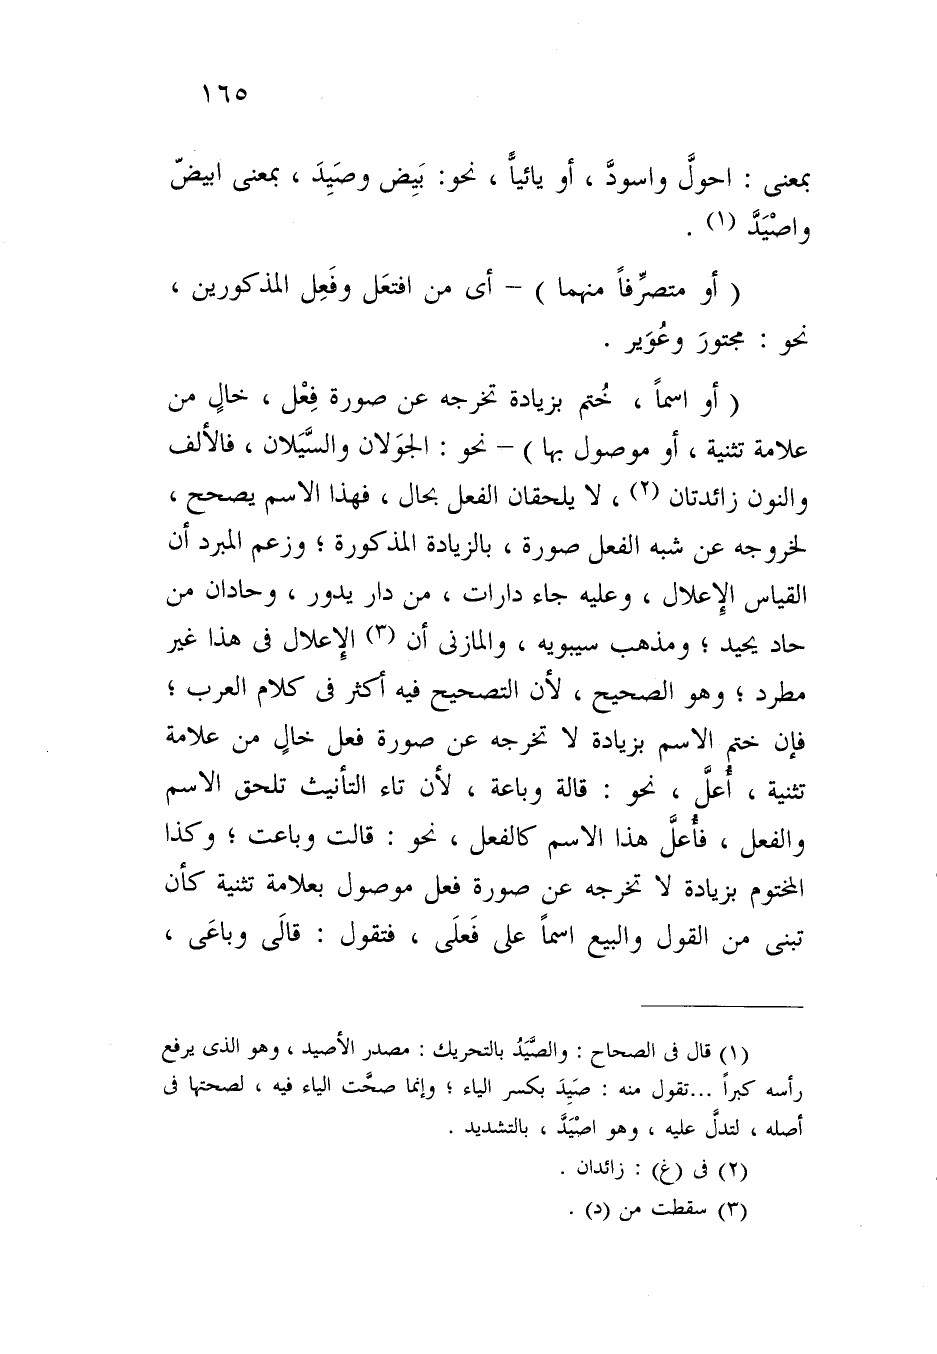 ١٦٥
بمعنى : احولَّ واسودَّ ، أو يائياًّ ، نحو: بَيِض وصَيِدَ ، بمعنى ابيضّ
واصْيَدَّ (١) .
( أو متصرِّفاً منهما ) – أى من افتعَل وفَعِل المذكورين ،
نحو : مجتورَ وعُوَير .
( أو اسماً ، خُتم بزيادة تخرجه عن صورة فِعْل ، خالٍ من
علامة تثنية ، أو موصول بها ) – نحو : الجوَلان والسَّيَلان ، فالألف
والنون زائدتان (٢) ، لا يلحقان الفعل بحال ، فهذا الاسم يصحح ،
لخروجه عن شبه الفعل صورة ، بالزيادة المذكورة ؛ وزعم المبرد أن
القياس الإعلال ، وعليه جاء دارات ، من دار يدور ، وحادان من
حاد يحيد ؛ ومذهب سيبويه ، والمازنى أن (٣) الإعلال فى هذا غير
مطرد ؛ وهو الصحيح ، لأن التصحيح فيه أكثر فى كلام العرب ؛
فإن ختم الاسم بزيادة لا تخرجه عن صورة فعل خالٍ من علامة
تثنية ، أُعلَّ ، نحو : قالة وباعة ، لأن تاء التأنيث تلحق الاسم
والفعل ، فأُعلَّ هذا الاسم كالفعل ، نحو : قالت وباعت ؛ وكذا
المختوم بزيادة لا تخرجه عن صورة فعل موصول بعلامة تثنية كأن
تبنى من القول والبيع اسماً على فَعلَى ، فتقول : قالَى وباعَى ،
(١) قال فى الصحاح : والصَّيَدُ بالتحريك : مصدر الأصيد ، وهو الذى يرفع
رأسه كبراً ...تقول منه : صَيِدَ بكسر الياء ؛ وإنما صحَّت الياء فيه ، لصحتها فى
أصله ، لتدلَّ عليه ، وهو اصْيَدَّ ، بالتشديد .
(٢) فى (غ) : زائدان .
(٣) سقطت من (د) .